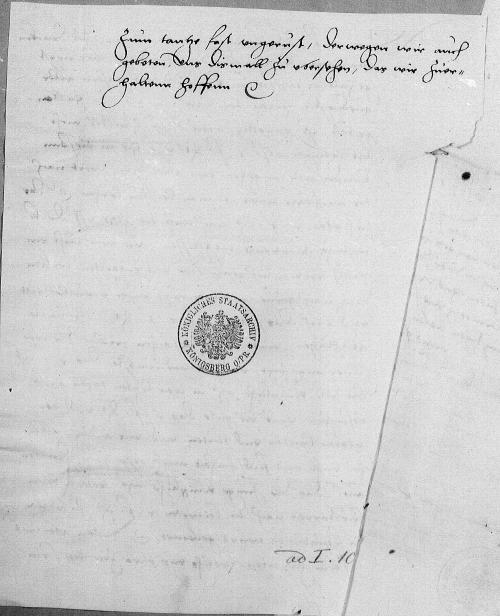 Zum tantze fast ungerust, derwegen wir auch
gebeten uns dismall zu ubersehen, das wir zuer-
haltenn hoffenn
KÖNIGLICHES STAATSARCHIV
KÖNIGSBERG O/PR.
ad I. 10